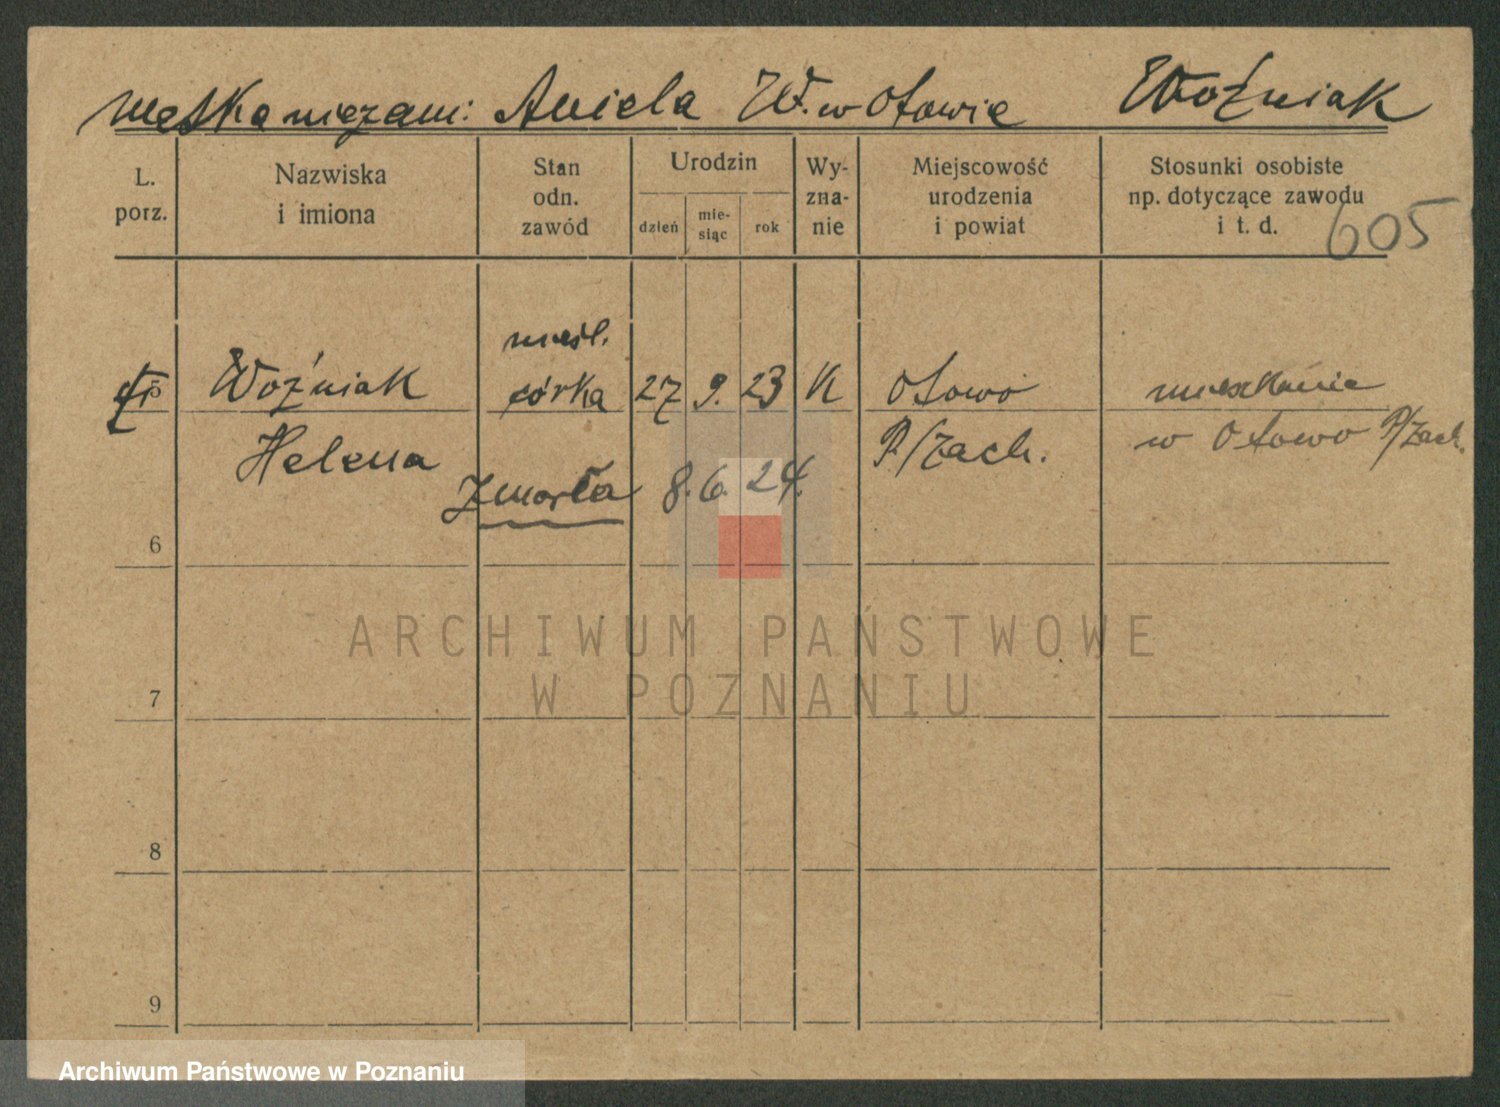 Matka niezam: Aniela W. w Otowie Woźniak
L. porz. Nazwiska i imiona Stan odn. zawód Urodzin dzień mie-siąc rok Wy-zna-nie Miejscowość urodzenia i powiat Stosunki osobiste np. dotyczące zawodu i t. d.
605
nieśl.
5 Woźniak córka 27 9. 23 K Otowo mieszkanie
Helena P/Zach. w Otowo P/Zach.
Zmarła 8. 6. 24.
6
ARCHIWUM PAŃSTWOWE
W POZNANIU
7
8
9
Archiwum Państwowe w Poznaniu